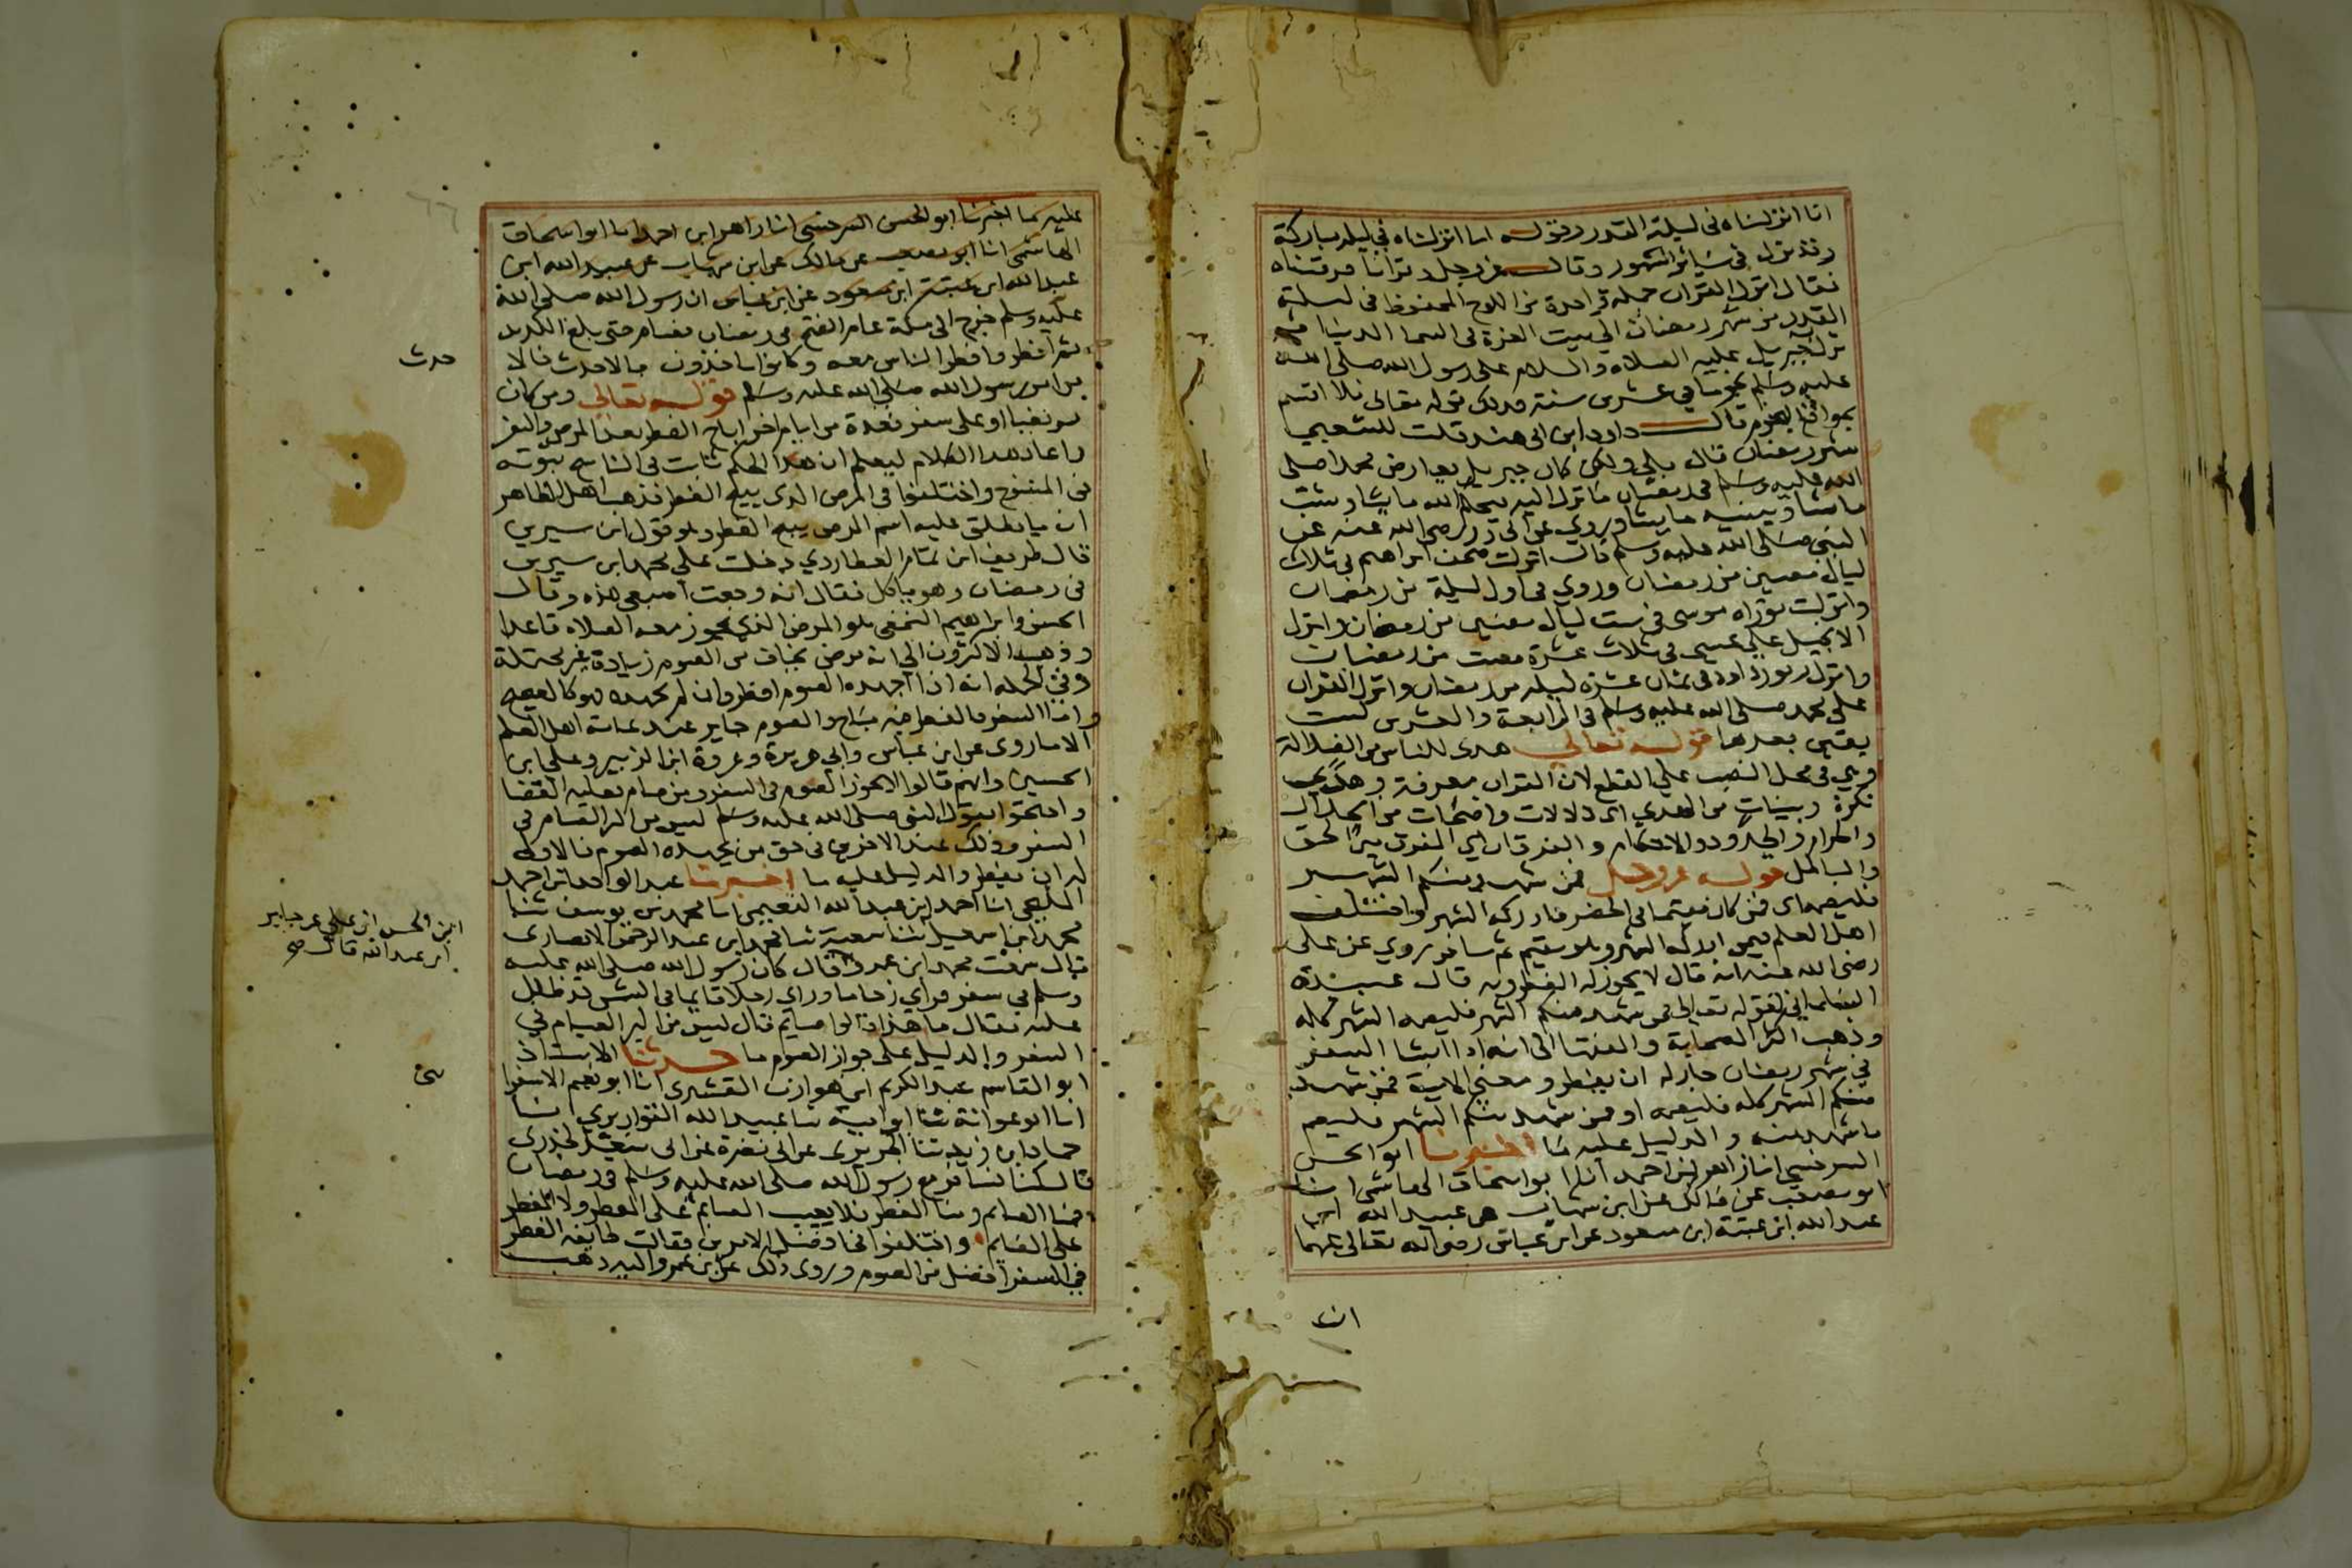 انا انزلناه في ليلة القدر وقوله انا انزلناه في ليلة مباركة
وقد نزل في سائر الشهور وقال عز وجل وقرانا فرقناه
فقال انزل القران جملة واحدة من اللوح المحفوظ في ليلة
القدر من شهر رمضان الى بيت العزة في السما الدنيا ثم
نزل به جبريل عليه الصلاة والسلام على رسول الله صلى الله
عليه وسلم نجوما في عشرين سنة فذلك قوله تعالى فلا اقسم
بمواقع النجوم قال داود ابن ابي هند قلت للشعبي
شهر رمضان قال بلى ولكن كان جبريل يعارض محمدا صلى
الله عليه وسلم في رمضان ما نزل اليه فيحكم الله ما يشا ويثبت
ما يشا وينسيه ما يشا وروي عن ابي ذر رضي الله عنه عن
النبي صلى الله عليه وسلم قال انزلت صحف ابراهيم في ثلاث
ليال مضين من رمضان وروي في اول ليلة من رمضان
وانزلت توراه موسى في ست ليال مضين من رمضان وانزل
الانجيل على عيسى في ثلاث عشرة مضت من رمضان
وانزل زبور داود في ثمان عشرة ليلة من رمضان وانزل القران
على محمد صلى الله عليه وسلم في الرابعة والعشرين لست
يقين بعدها قوله تعالى هدى للناس من الضلالة
وهي في محل النصب على القطع لان القران معرفة وهدى
نكرة وبينات من الهدي اي دلالات واضحات من الحلال
والحرام والحدود والاحكام والفرقان اي المفرق بين الحق
والباطل قوله عز وجل فمن شهد منكم الشهر
فليصمه اي فمن كان مقيما في الحضر فادركه الشهر واختلف
اهل العلم فيمن ادركه الشهر وهو مقيم ثم سافر روي عن علي
رضي الله عنه انه قال لا يجوز له الفطر وبه قال عبيدة
السلماني لقوله تعالى فمن شهد منكم الشهر فليصمه الشهر كله
وذهب اكثر الصحابة والفقها الى انه اذا انشا السفر
في شهر رمضان جاز له ان يفطر ومعنى الاية فمن شهد
منكم الشهر كله فليصمه او فمن شهد منكم الشهر فليصم
ما شهد منه والدليل عليه ما اخبرنا ابو الحسن
السرخسي انا زاهر ابن احمد انا ابو اسحاق الهاشمي انا
ابو مصعب عن مالك عن ابن شهاب عن عبيد الله ابن
عبد الله ابن عتبة ابن مسعود عن ابن عباس رضي الله تعالى عنهما
ان
عليه كما اخبرنا ابو الحسن السرخسي انا زاهر ابن احمد انا ابو اسحاق
الهاشمي انا ابو مصعب عن مالك عن ابن شهاب عن عبيد الله ابن
عبد الله ابن عتبة ابن مسعود عن ابن عباس ان رسول الله صلى الله
عليه وسلم خرج الى مكة عام الفتح في رمضان فصام حتى بلغ الكديد
ثم افطر وافطر الناس معه وكانوا ياخذون بالاحدث فالا
من امر رسول الله صلى الله عليه وسلم قوله تعالى ومن كان
مريضا او على سفر فعدة من ايام اخر اباح الفطر بعذر المرض والسفر
واعاد هذا الكلام ليعلم ان هذا الحكم ثابت في الناسخ ثبوته
في المنسوخ واختلفوا في المرض الذي يبيح الفطر فذهب اهل الظاهر
ان ما يطلق عليه اسم المرض يبيح الفطر وهو قول ابن سيرين
قال طريف ابن تمام العطاردي دخلت على محمد ابن سيرين
في رمضان وهو ياكل فقال انه وجعت اصبعي هذه وقال
الحسن وابراهيم النخعي هو المرض الذي يجوز معه الصلاه قاعدا
وذهب الاكثرون الى انه مرض يخاف من الصوم زيادة غير محتملة
وفي الجملة انه اذا اجهده الصوم افطر وان لم يجهده فهو كالصحيح
واما السفر فالفطر فيه مباح والصوم جايز عند عامة اهل العلم
الا ما روى عن ابن عباس وابي هريرة وعروة ابن الزبير وعلي ابن
الحسين وانهم قالوا لا يجوز الصوم في السفر ومن صام فعليه القضا
واحتجوا بقول النبي صلى الله عليه وسلم ليس من البر الصيام في
السفر وذلك عند الاخرين في حق من يجهده الصوم فالاولى
له ان يفطر والدليل عليه ما اخبرنا عبد الواحد ابن احمد
المليحي انا احمد ابن عبد الله النعيمي انا محمد بن يوسف ثنا
محمد ابن اسمعيل ثنا شعبة ثنا محمد ابن عبد الرحمن الانصاري
قال سمعت محمد ابن عمرو قال كان رسول الله صلى الله عليه
وسلم في سفر فراي زحاما وراي رجلا قايما في الشمس قد ظلل
عليه فقال ما هذا قالوا صايم قال ليس من البر الصيام في
السفر والدليل على جواز الصوم ما حدثنا الاستاذ
ابو القاسم عبد الكريم ابن هوازن القشيري انا ابو نعيم الاسفرا
انا ابو عوانة ثنا ابو امية ثنا عبيد الله القواريري انا
حماد ابن زيد ثنا الجريري عن ابي نضرة عن ابي سعيد الخدري
قال كنا نسافر مع رسول الله صلى الله عليه وسلم في رمضان
فمنا الصايم ومنا المفطر فلا يعيب الصايم على المفطر ولا المفطر
على الصايم واختلفوا في افضل الامرين فقالت طايفة الفطر
في السفر افضل من الصوم وروى ذلك عن ابن عمر واليه ذهب
حدث
ابن الحسن ابن علي عن جابر
ابن عبد الله قال صح